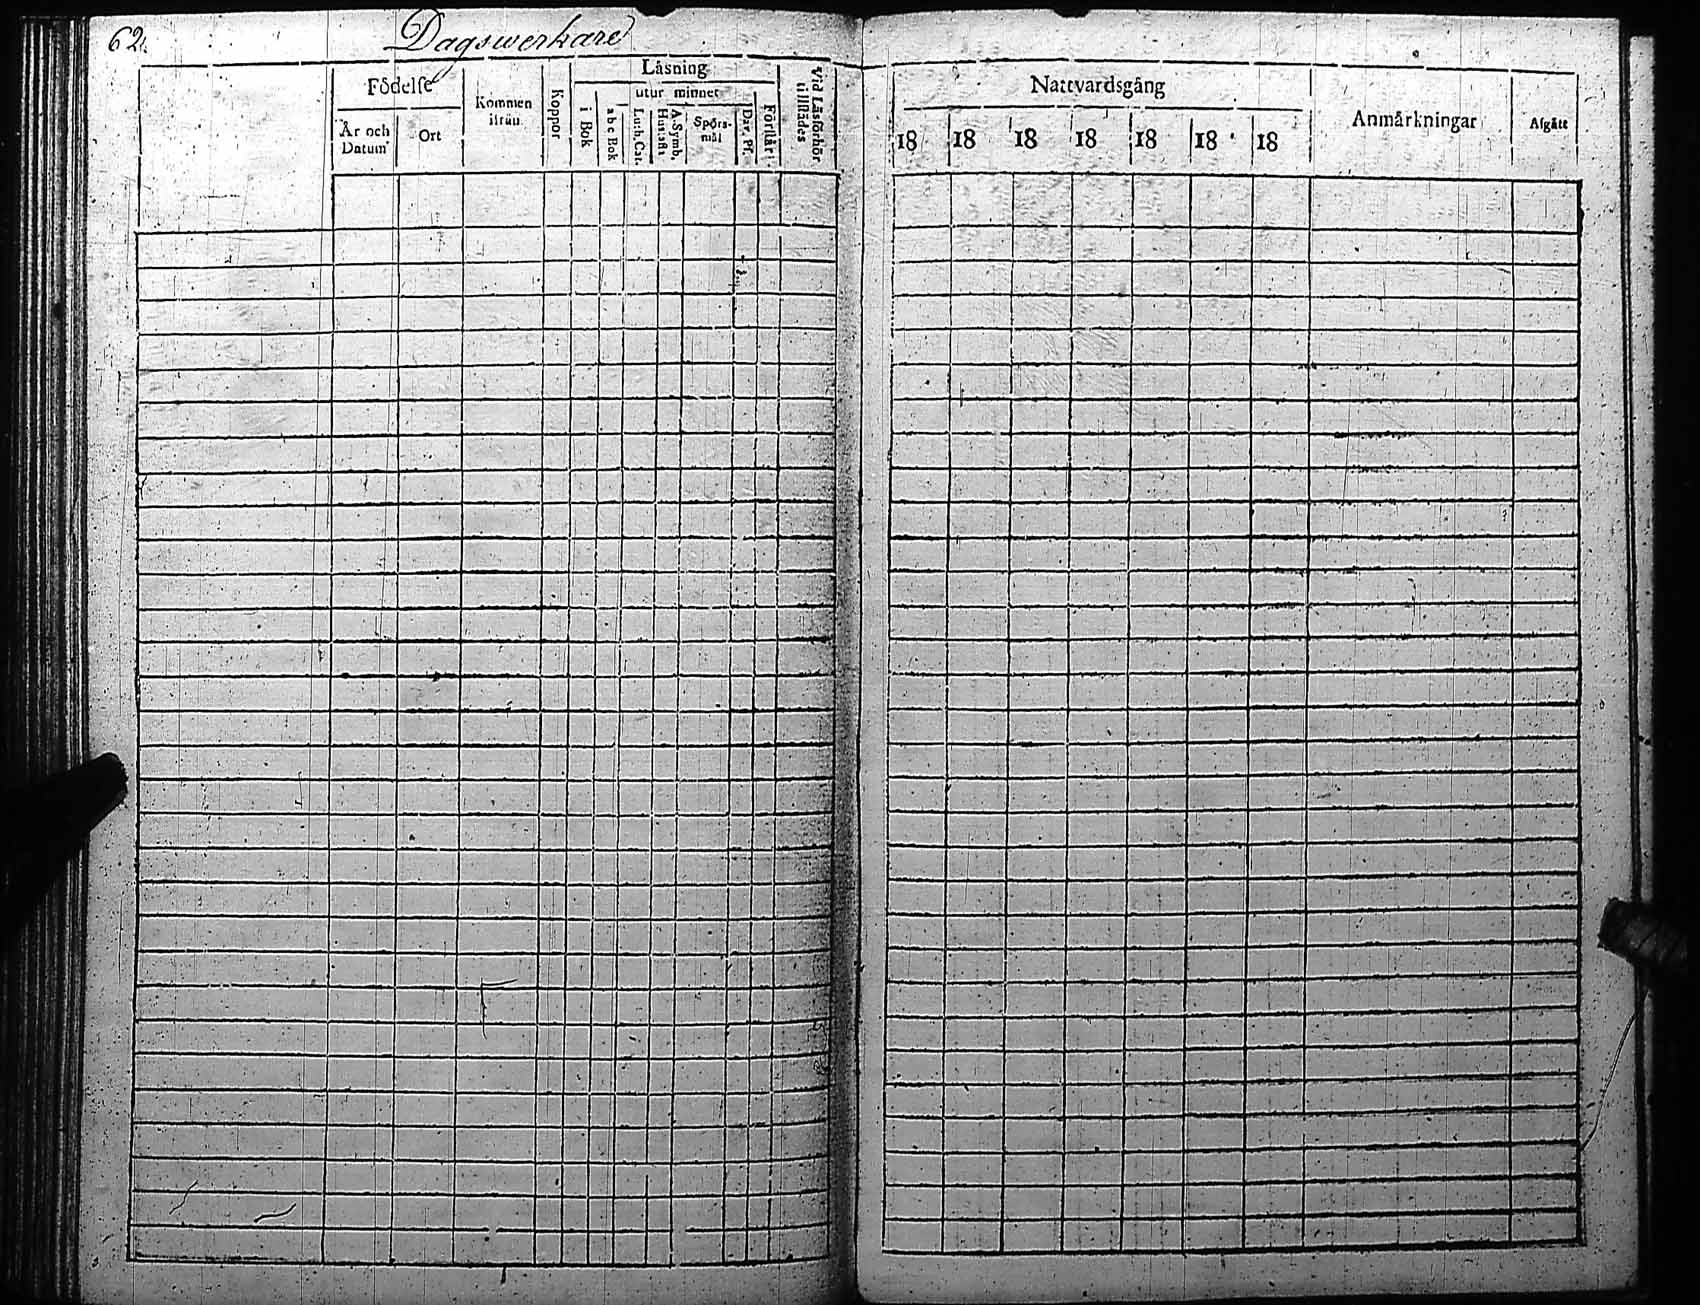 62.
Dagswerkare
Födelse
År och Datum
Ort
Kommen ifrån
Koppor
Läsning
utur minnet
i Bok
a b c Bok
Luth. Cat.
A. Symb. Hustafla
Spörsmål
Dav. Ps.
Förstår
Vid Läsförhör tillstädes
Nattvardsgång
18 18 18 18 18 18 18
Anmärkningar
Afgått